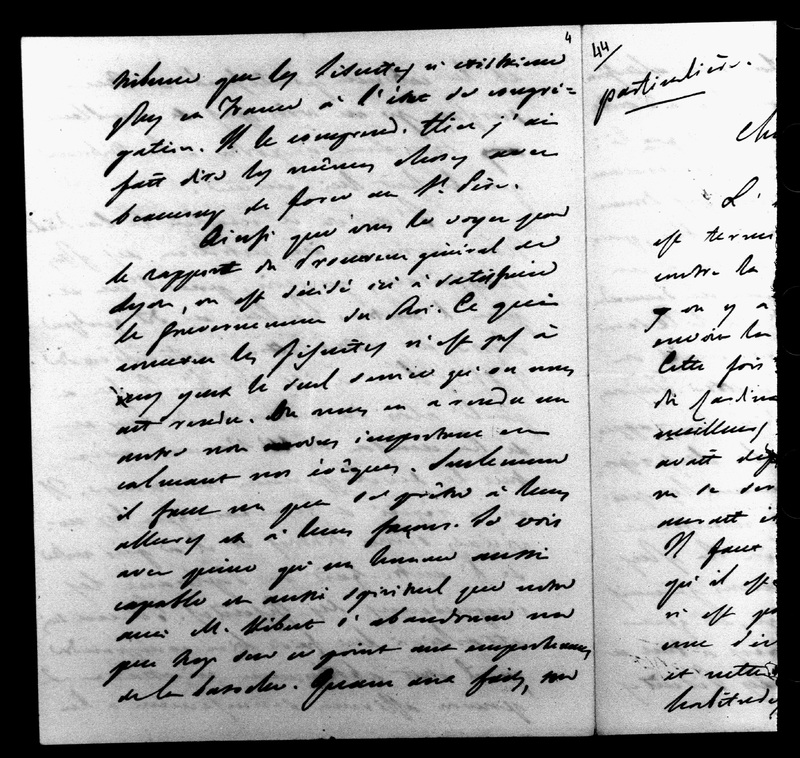 4
tribune que les Jésuites n'existaient
plus en France à l'état de congré=
gation. Il le comprend. Hier j'ai
fait dire les mêmes choses avec
beaucoup de force au St. Père.
Ainsi que vous le voyez par
le rapport du Procureur général de
Lyon, on est décidé ici à satisfaire
le Gouvernement du Roi. Ce qui
concerne les Jésuites n'est pas à
mes yeux le seul service qu'on nous
ait rendu. On nous en a rendu un
autre non moins important en
calmant nos évêques. Seulement
il faut un peu se prêter à leurs
allures et à leurs façons. Je vois
avec peine qu'un homme aussi
capable et aussi spirituel que notre
ami M. s'abandonne un
peu trop sur ce point aux emportemens
de la basoche. Quant aux faits, on
44/
particulière.
L'
est termi
contre la
qu'on y a
envoie la
Cette fois
du jardin
meilleurs
avait déjà
on se ser
aurait
Il faut
qu'il est
n'est pa
une
et nette
habitude